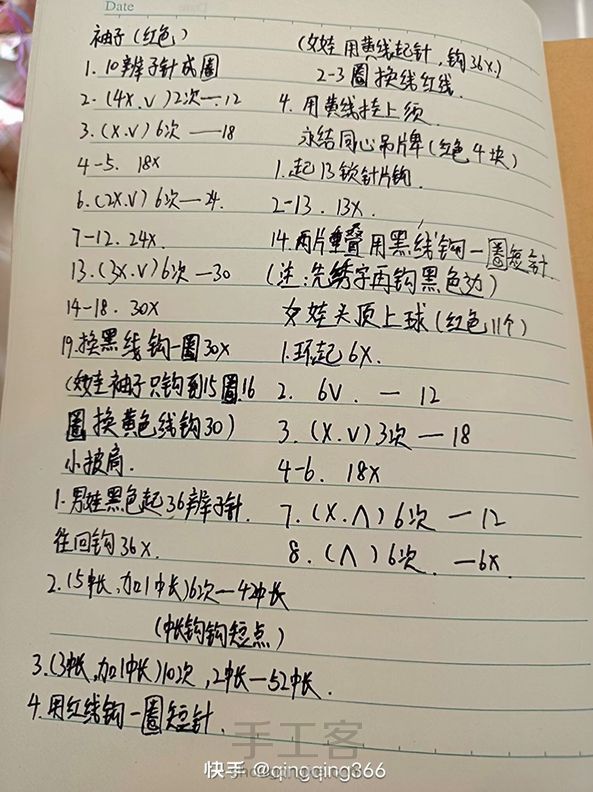 Date
袖子(红色)
1. 10辫子针成圈
2. (4X.V)2次一.12
3. (X.V)6次 — 18
4-5. 18X
6. (2X.V)6次—24.
7-12. 24X
13. (3X.V)6次—30
14-18. 30X
19.换黑线钩一圈30X
(女娃袖子只钩到15圈.16
圈换黄色线钩30)
小披肩.
1.男娃黑色起36辫子针.
往回钩36X.
2.(5中长,加1中长)6次—42中长
(中长钩钩短点)
3.(3中长,加1中长)10次,2中长—52中长.
4.用红线钩一圈短针.
(女娃用黄线起针,钩36X.)
2-3圈换线红线.
4. 用黄线挂上须
永结同心吊牌(红色4块)
1.起13锁针片钩.
2-13. 13X.
14.两片重叠用黑线钩一圈短针.
(注:先绣字再钩黑色边)
女娃头顶上球(红色11个)
1.环起6X.
2. 6V. — 12
3. (X.V)3次—18
4-6. 18X
7. (X.Λ)6次 —12
8. (Λ)6次. —6X.
手工客
快手 @qingqing366